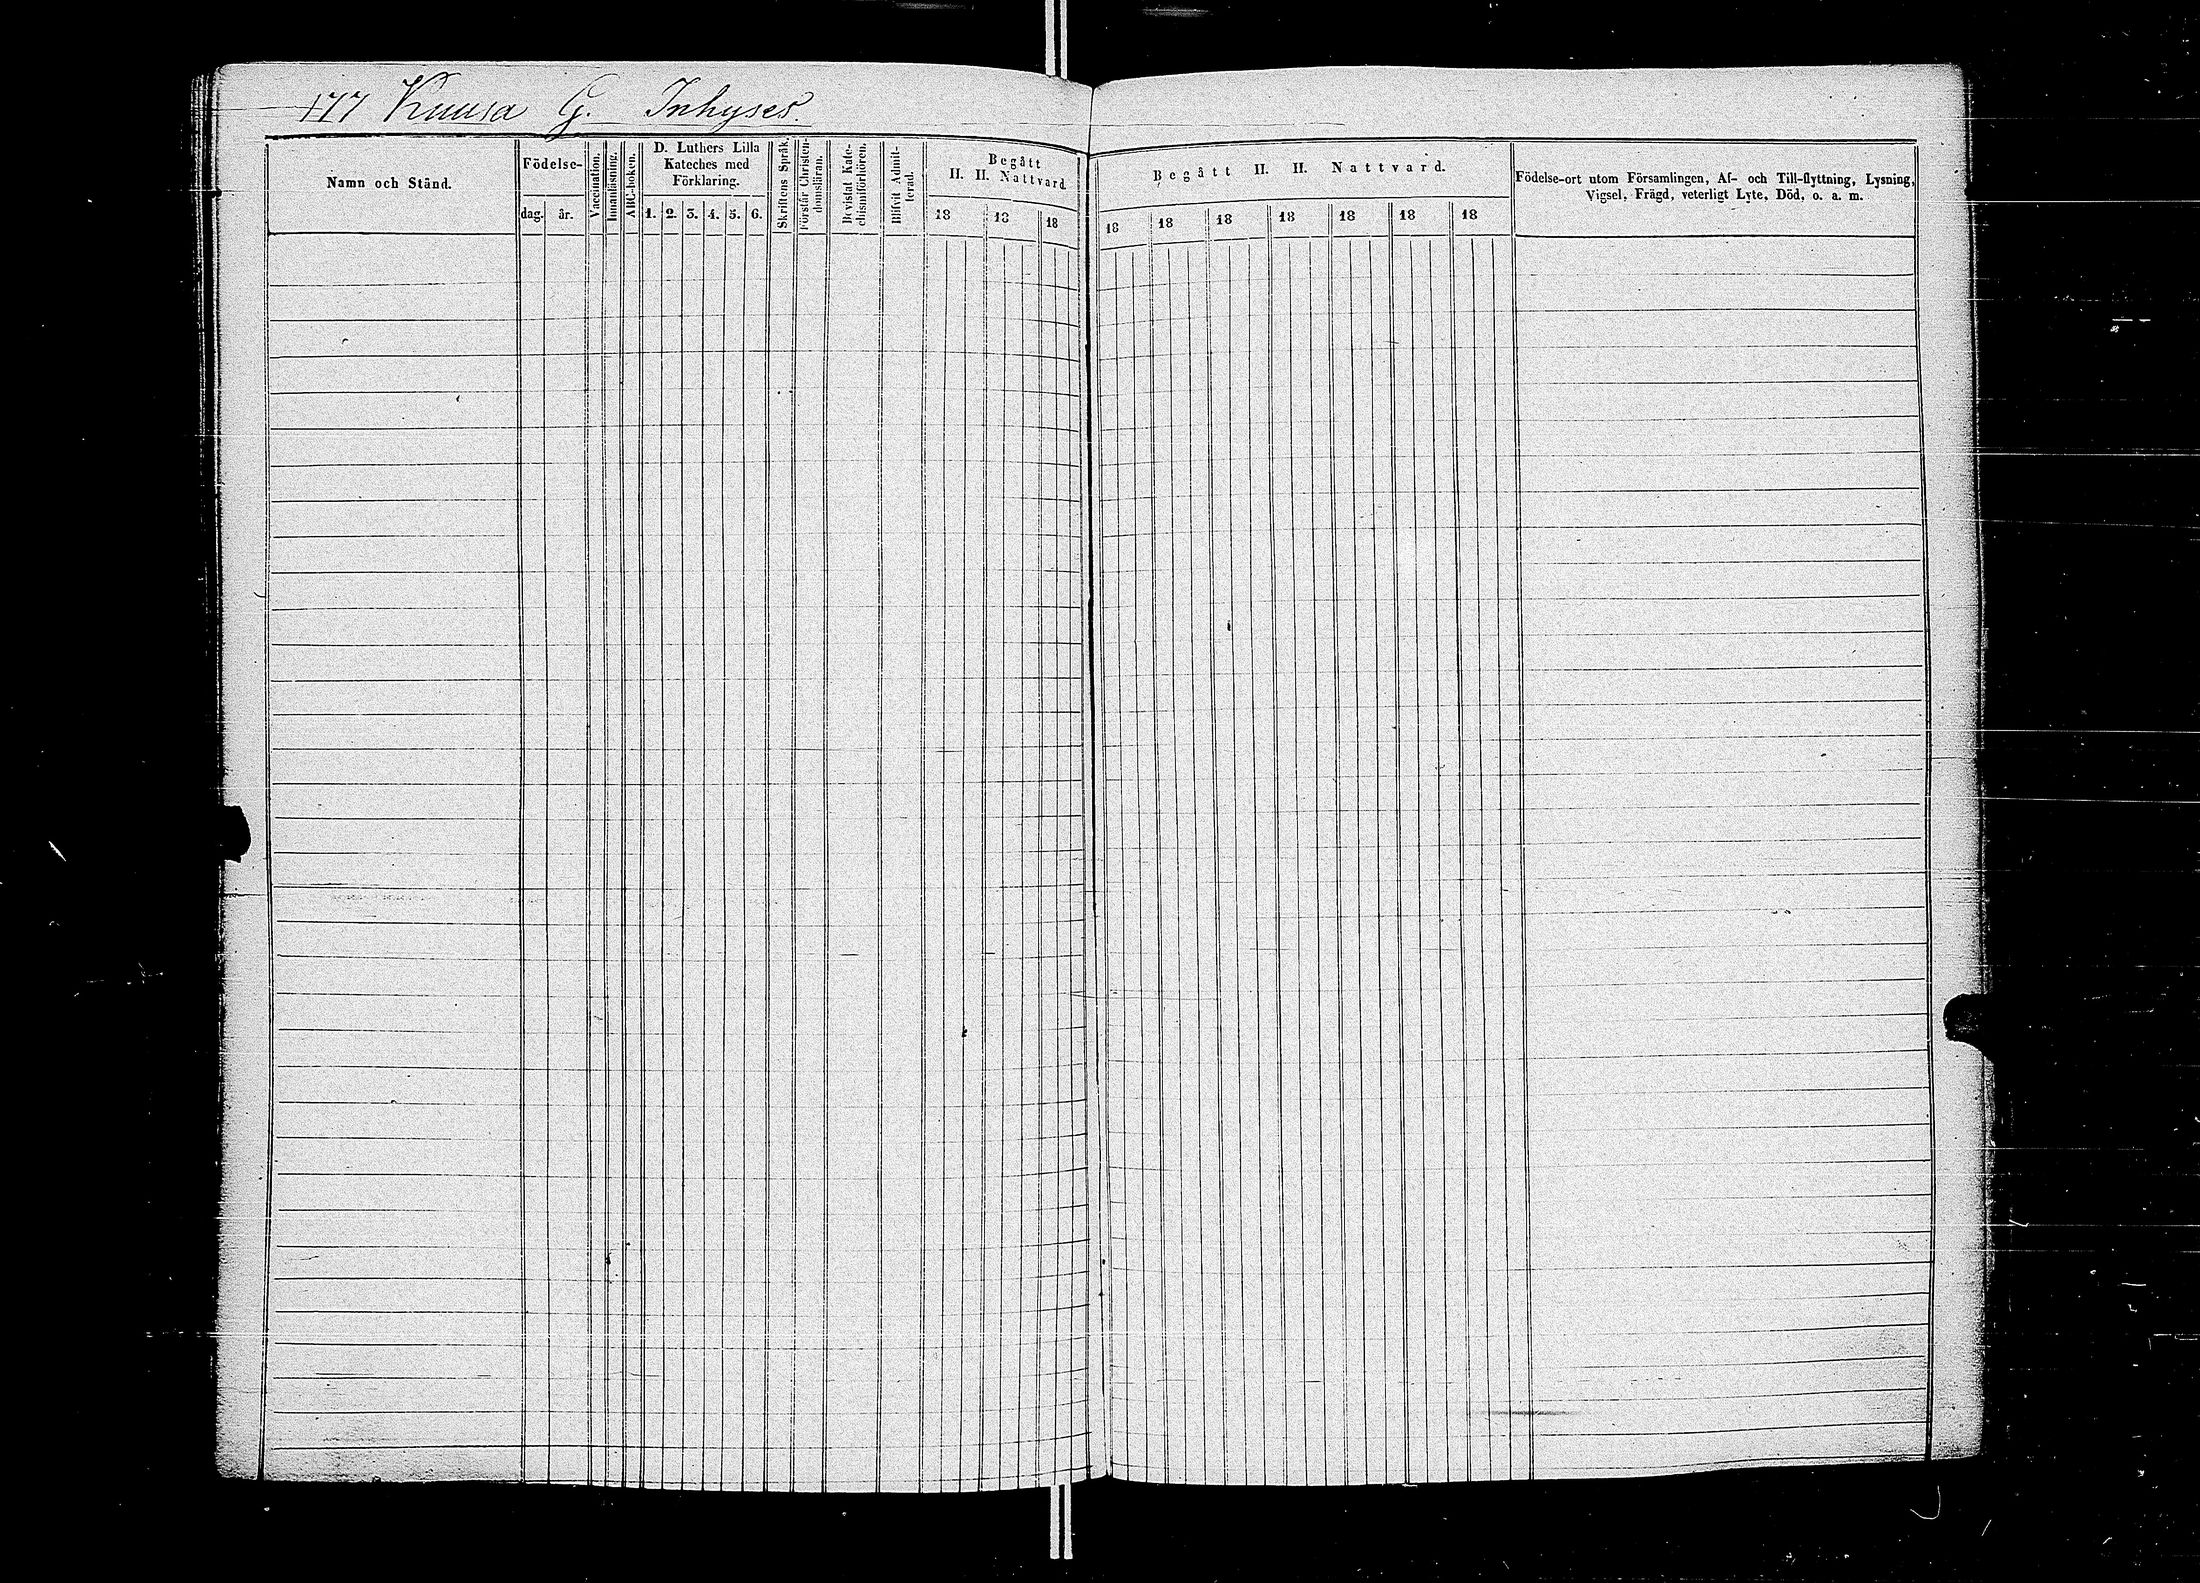 177 Kuusa G. Inhyses.
Namn och Stånd.
Födelse-
dag. år.
Vaccination.
Innanläsning.
ABC-boken.
D. Luthers Lilla
Kateches med
Förklaring.
1. 2. 3. 4. 5. 6.
Skriftens Språk.
Förstår Christen-
domsläran.
Bevistat Kate-
chismiförhören.
Blifvit Admit-
terad.
Begått
H. H. Nattvard
18 18 18
Begått H. H. Nattvard.
18 18 18 18 18 18 18
Födelse-ort utom Församlingen, Af- och Till-flyttning, Lysning,
Vigsel, Frägd, veterligt Lyte, Död, o. a. m.